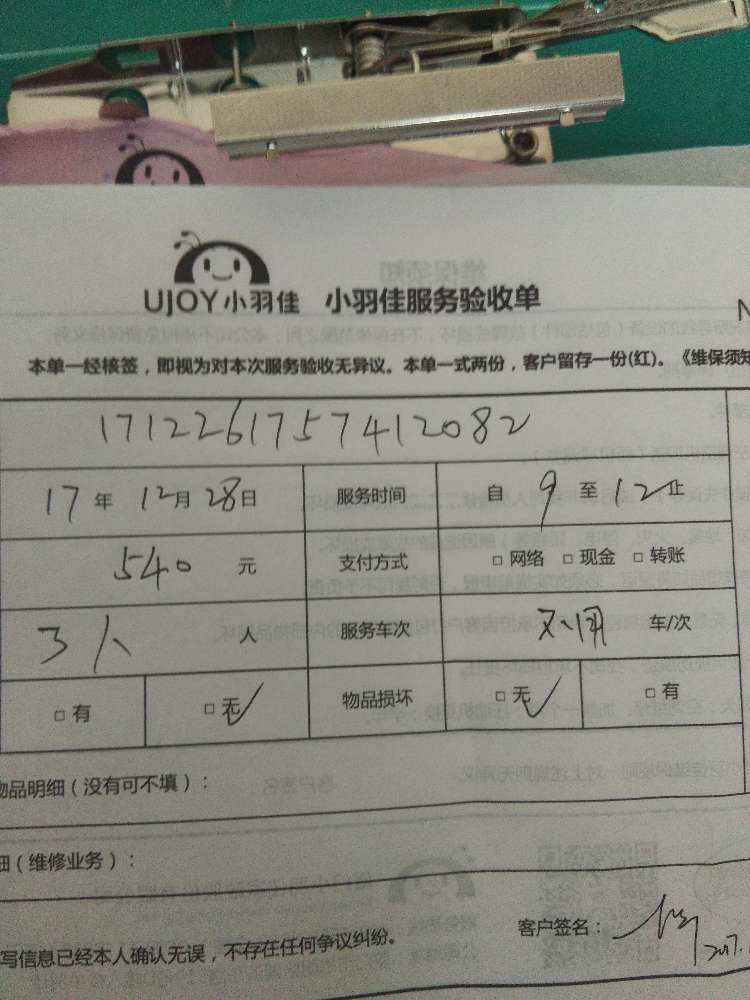 UJOY小羽佳 小羽佳服务验收单
本单一经核签，即视为对本次服务验收无异议。本单一式两份，客户留存一份(红)。《维保须知
1712261757412082
17年 12月 28日 服务时间 自 9 至 12止
540 元 支付方式 □ 网络 □ 现金 □ 转账
3人 人 服务车次 不用 车/次
□ 有 □ 无 物品损坏 □ 无 □ 有
物品明细（没有可不填）：
（维修业务）：
写信息已经本人确认无误，不存在任何争议纠纷。
客户签名：
2017.